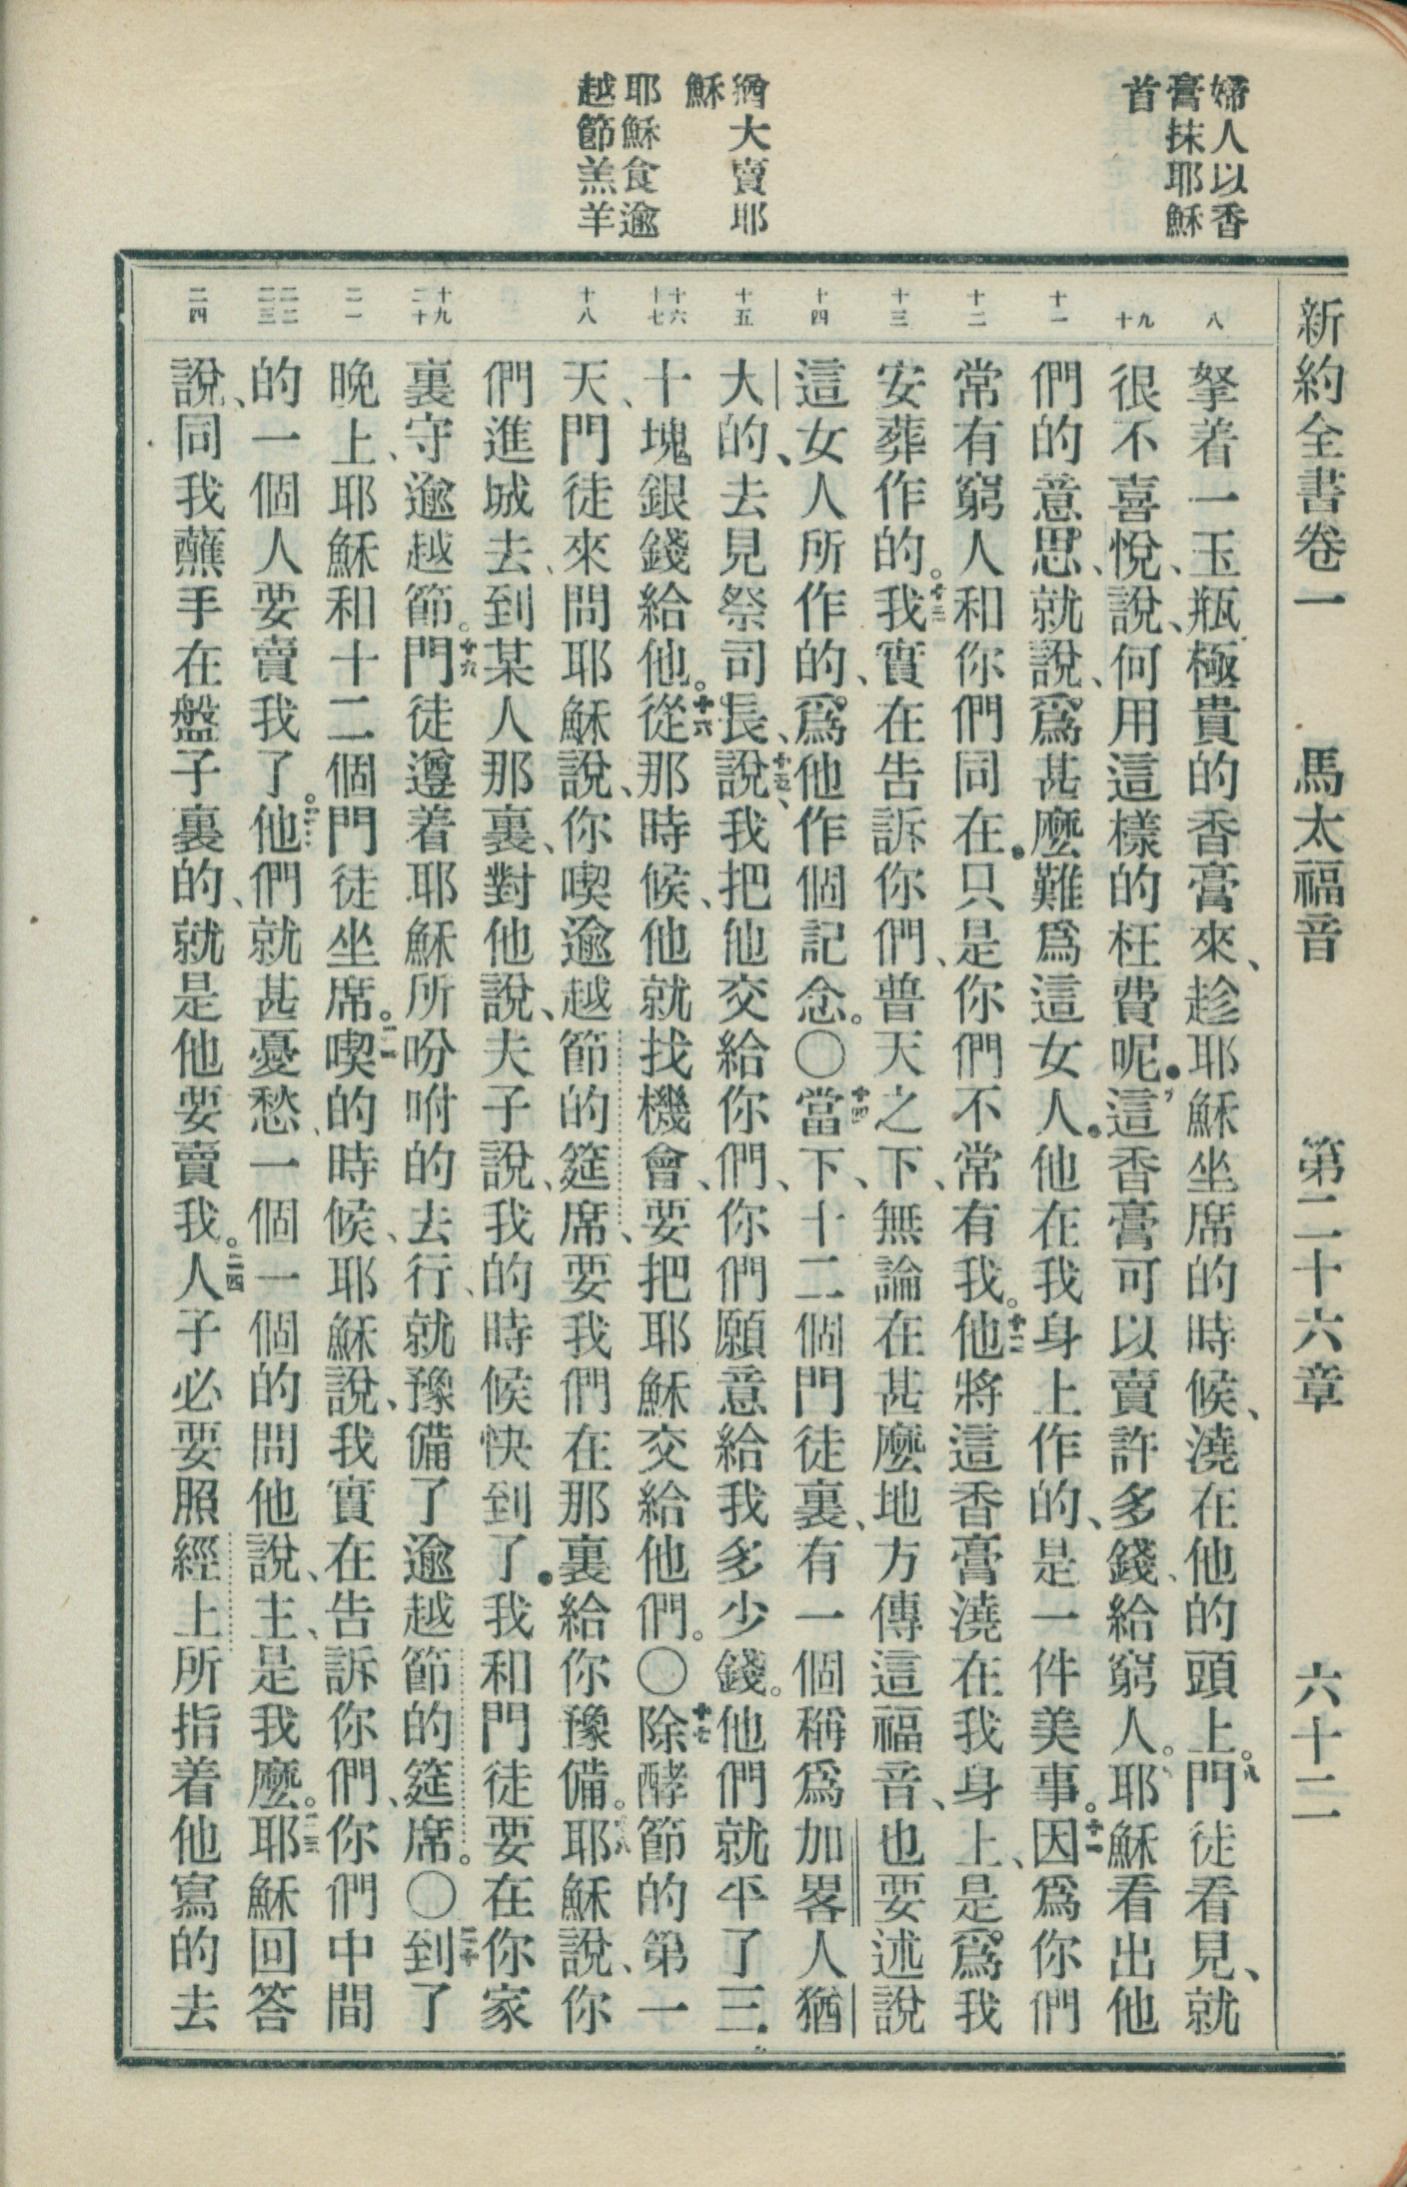 新約全書卷一 馬太福音 第二十六章 六十二
婦人以香
膏抹耶穌
首
猶大賣耶
穌
耶穌食逾
越節羔羊
八
九
十
十一
十二
十三
十四
十五
十六
十七
十八
十九
二十
二一
二二
二三
二四
拏着一玉瓶極貴的香膏來、趁耶穌坐席的時候、澆在他的頭上。八門徒看見、就
很不喜悅、說、何用這樣的枉費呢。九這香膏可以賣許多錢、給窮人。十耶穌看出他
們的意思、就說、爲甚麼難爲這女人。他在我身上作的、是一件美事。十一因爲你們
常有窮人和你們同在。只是你們不常有我。十二他將這香膏澆在我身上、是爲我
安葬作的。十三我實在告訴你們、普天之下、無論在甚麼地方傳這福音、也要述說
這女人所作的、爲他作個記念。〇十四當下、十二個門徒裏、有一個稱爲加畧人猶
大的、去見祭司長、十五說、我把他交給你們、你們願意給我多少錢。他們就平了三
十塊銀錢給他。十六從那時候、他就找機會、要把耶穌交給他們。〇十七除酵節的第一
天、門徒來問耶穌說、你喫逾越節的筵席、要我們在那裏給你豫備。十八耶穌說、你
們進城去、到某人那裏、對他說、夫子說、我的時候快到了。我和門徒要在你家
裏守逾越節。十九門徒遵着耶穌所吩咐的去行、就豫備了逾越節的筵席。〇二十到了
晚上、耶穌和十二個門徒坐席。二一喫的時候、耶穌說、我實在告訴你們、你們中間
的一個人要賣我了。二二他們就甚憂愁、一個一個的問他說、主、是我麼。二三耶穌回答
說、同我蘸手在盤子裏的、就是他要賣我。二四人子必要照經上所指着他寫的去